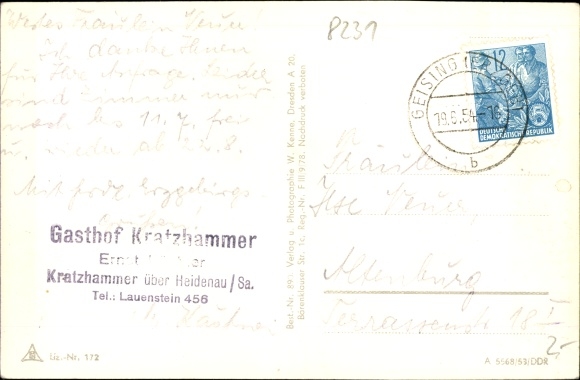 8231
Wertes Fräulein
Ich danke Ihnen
für Ihre Anfrage. Leider
sind Zimmer nur
noch bis 11.7. frei
u. wieder ab 2.8.
Mit frdl. Erzgebirgs-
Gasthof Kratzhammer
Kratzhammer über Heidenau/Sa.
Tel.: Lauenstein 456
Liz.-Nr. 172
Verlag u. Photographie W. Kenne, Dresden A 20,
Reg.-Nr. F III 9.78. Nachdruck verboten
GEISING
19.6.54
b
12
DEUTSCHE
DEMOKRATISCHE REPUBLIK
Fräulein
Ilse
Altenburg
Terrassenstr. 18 I
2,-
A 5568/53/DDR